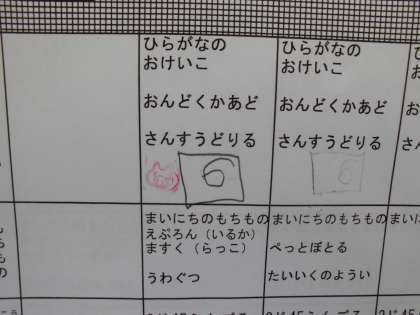 ひらがなの
おけいこ
おんどくかあど
さんすうどりる
6
まいにちのもちもの
えぷろん（いるか）
ますく（らっこ）
うわぐつ
ひらがなの
おけいこ
おんどくかあど
さんすうどりる
6
まいにちのもちもの
ぺっとぼとる
たいいくのようい